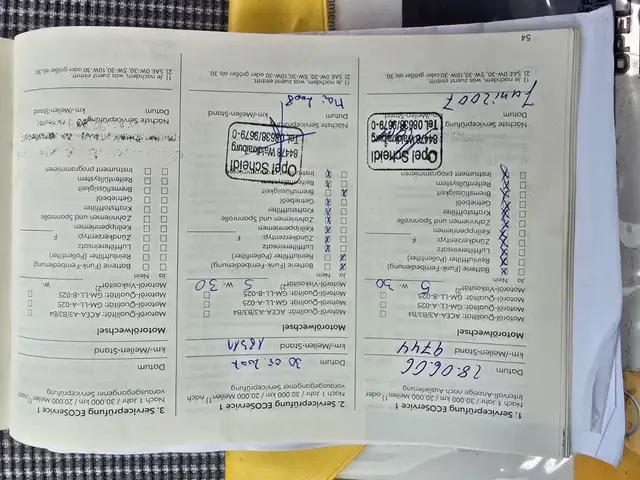 1. Serviceprüfung ECOService 1
Nach 1 Jahr / 30.000 km / 20.000 Meilen¹) oder
Intervall-Anzeige nach Auslieferung
28.06.06
Datum
9744
km-/Meilen-Stand
Motorölwechsel
Motoröl-Qualität: ACEA-A3/B3/B4
Motoröl-Qualität: GM-LL-A-025
Motoröl-Qualität: GM-LL-B-025
Motoröl-Viskosität²) 5 W- 30
Ja Nein
Batterie (Funk-Fernbedienung)
Reinluftfilter (Pollenfilter)
Luftfiltereinsatz
Zündkerzentyp: F
Keilrippenriemen
Zahnriemen und Spannrolle
Kraftstofffilter
Getriebeöl
Bremsflüssigkeit
Reifenfüllsystem
Instrument programmieren
Opel Scheidl
84478 Waldkraiburg
Tel. 08638/9679-0
Nächste Serviceprüfung
Datum
Juni 2007
km-/Meilen-Stand
1) Je nachdem, was zuerst eintritt.
2) SAE 0W-30, 5W-30, 10W-30 oder größer als 30
54
2. Serviceprüfung ECOService 1
Nach 1 Jahr / 30.000 km / 20.000 Meilen¹) nach
vorausgegangener Serviceprüfung
Datum
18511
km-/Meilen-Stand
Motorölwechsel
Motoröl-Qualität: ACEA-A3/B3/B4
Motoröl-Qualität: GM-LL-A-025
Motoröl-Qualität: GM-LL-B-025
Motoröl-Viskosität²) 5 W- 30
Ja Nein
Batterie (Funk-Fernbedienung)
Reinluftfilter (Pollenfilter)
Luftfiltereinsatz
Zündkerzentyp: F
Keilrippenriemen
Zahnriemen und Spannrolle
Kraftstofffilter
Getriebeöl
Bremsflüssigkeit
Reifenfüllsystem
Opel Scheidl
84478 Waldkraiburg
Tel. 08638/9679-0
Nächste Serviceprüfung
Datum
Mai 2008
km-/Meilen-Stand
1) Je nachdem, was zuerst eintritt.
2) SAE 0W-30, 5W-30, 10W-30 oder größer als 30
3. Serviceprüfung ECOService 1
Nach 1 Jahr / 30.000 km / 20.000 Meilen¹) nach
vorausgegangener Serviceprüfung
Datum
km-/Meilen-Stand
Motorölwechsel
Motoröl-Qualität: ACEA-A3/B3/B4
Motoröl-Qualität: GM-LL-A-025
Motoröl-Qualität: GM-LL-B-025
Motoröl-Viskosität²) W-
Ja Nein
Batterie (Funk-Fernbedienung)
Reinluftfilter (Pollenfilter)
Luftfiltereinsatz
Zündkerzentyp: F
Keilrippenriemen
Zahnriemen und Spannrolle
Kraftstofffilter
Getriebeöl
Bremsflüssigkeit
Reifenfüllsystem
Instrument programmieren
Nächste Serviceprüfung
Datum
km-/Meilen-Stand
1) Je nachdem, was zuerst eintritt.
2) SAE 0W-30, 5W-30, 10W-30 oder größer als 30